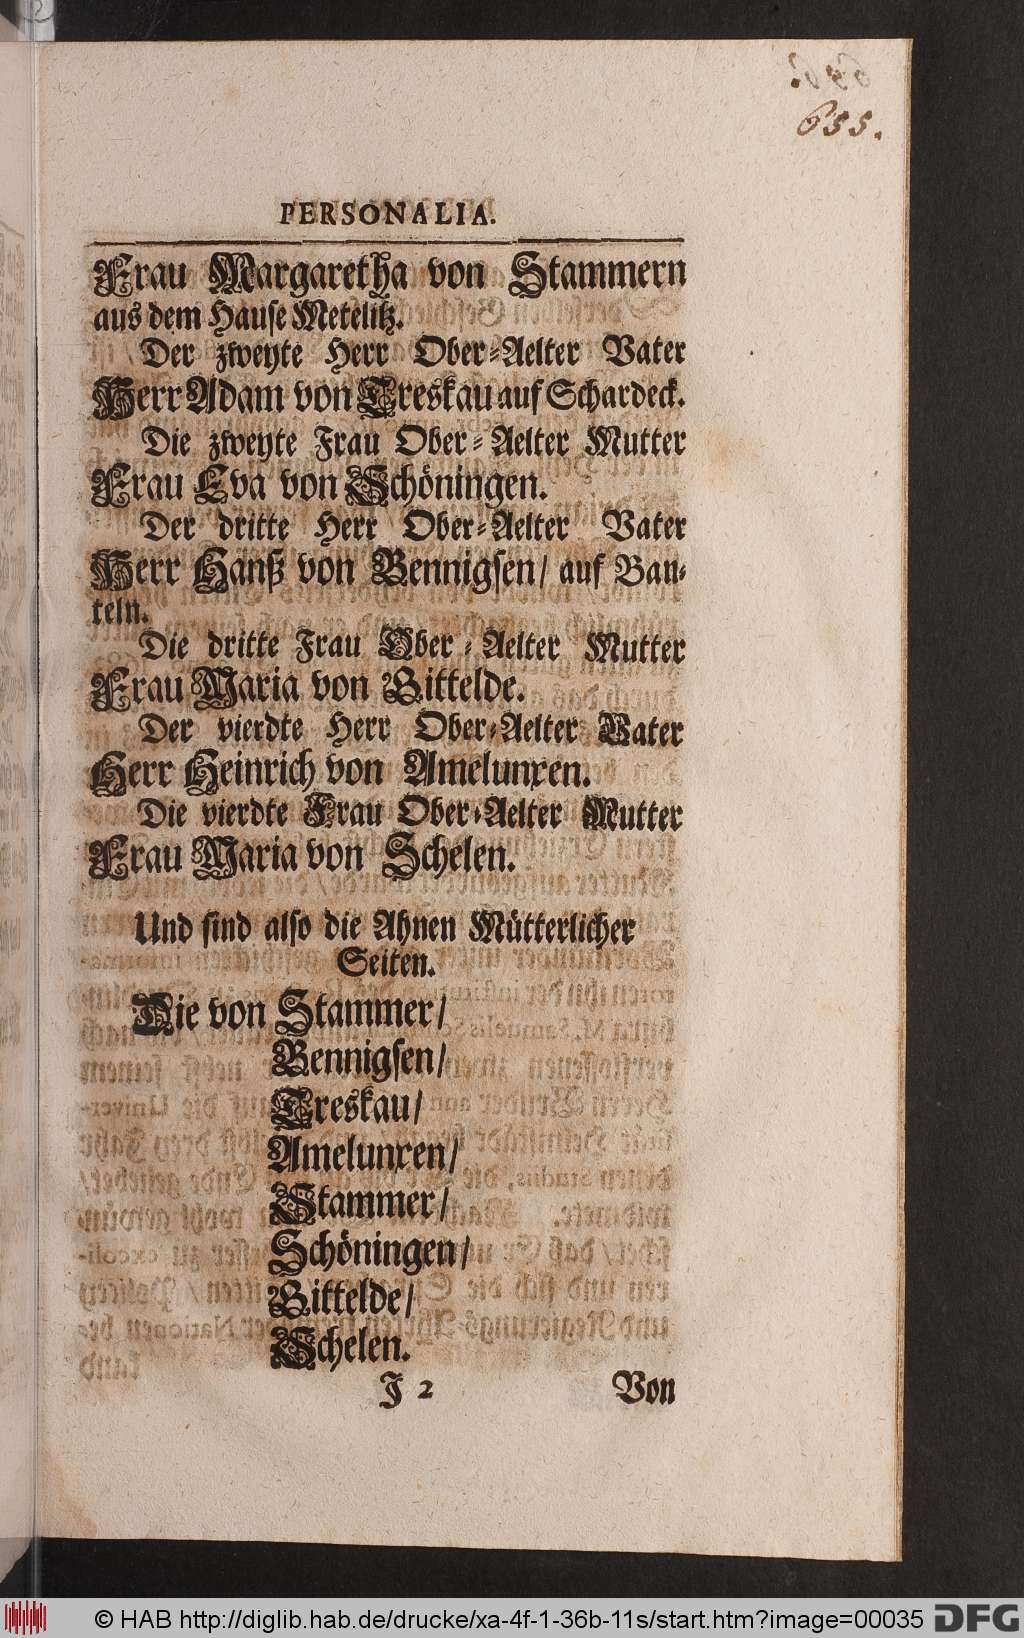 655.
PERSONALIA.
Frau Margaretha von Stammern
aus dem Hause Metelitz.
Der zweyte Herr Ober-Aelter Vater
Herr Adam von Treskau auf Schardeck.
Die zweyte Frau Ober-Aelter Mutter
Frau Eva von Schöningen.
Der dritte Herr Ober-Aelter Vater
Herr Hanß von Bennigsen/ auf Ban-
teln.
Die dritte Frau Ober-Aelter Mutter
Frau Maria von Bittelde.
Der vierdte Herr Ober-Aelter Vater
Herr Heinrich von Amelunxen.
Die vierdte Frau Ober-Aelter Mutter
Frau Maria von Schelen.
Und sind also die Ahnen Mütterlicher
Seiten.
Die von Stammer/
Bennigsen/
Treskau/
Amelunxen/
Stammer/
Schöningen/
Bittelde/
Schelen.
J 2 Von
© HAB http://diglib.hab.de/drucke/xa-4f-1-36b-11s/start.htm?image=00035 DFG